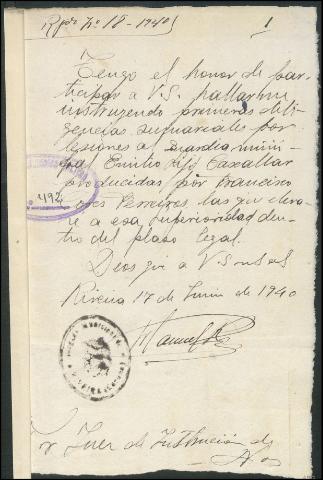 Rpdo Nº 18 - 1940
1
Tengo el honor de par-
ticipar a V.S. hallarme
instruyendo primeras dili-
gencias sumariales por
lesiones al Guardia muni-
pal Emilio Caxallar
producidas por Francisco
Ferreiros, las que eleva-
re a esa Superioridad den-
tro del plazo legal.
Dios gu a V.S. m
Riveira 17 de Junio de 1940
Manuel
492
r Juez de Instrucción de